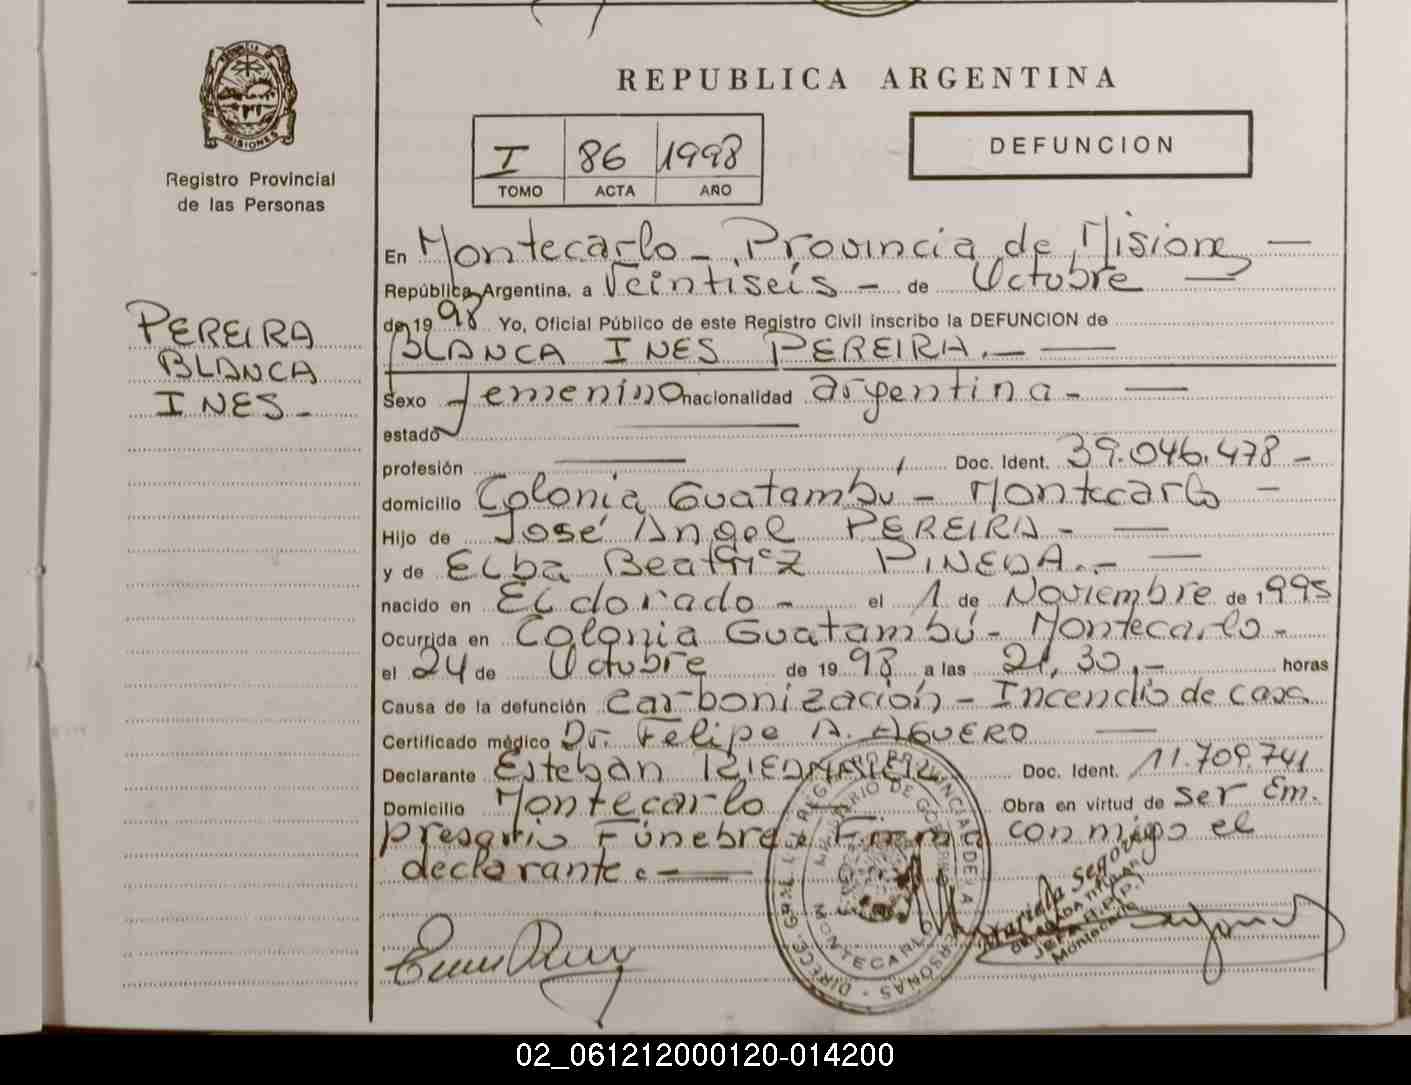 REPUBLICA ARGENTINA
MISIONES
Registro Provincial
de las Personas
I 86 1998
TOMO ACTA AÑO
DEFUNCION
PEREIRA
BLANCA
INES-
En Montecarlo - Provincia de Misiones —
República Argentina, a Veintiseis - de Octubre —
de 19 98 Yo, Oficial Público de este Registro Civil inscribo la DEFUNCION de
BLANCA INES PEREIRA.- —
Sexo femenino nacionalidad argentina - —
estado —
profesión — Doc. Ident. 39.046.478 -
domicilio Colonia Guatambú - Montecarlo -
Hijo de José Angel PEREIRA - —
y de Elba Beatriz PINEDA.- —
nacido en Eldorado - el 1 de Noviembre de 1995
Ocurrida en Colonia Guatambú - Montecarlo -
el 24 de Octubre de 19 98 a las 21,30.- horas
Causa de la defunción carbonización - Incendio de casa
Certificado médico Dr. Felipe A. AGUERO —
Declarante Esteban Doc. Ident. 11.709.741
Domicilio Montecarlo Obra en virtud de ser Em.
presario Fúnebre. Firma conmigo el
declarante. - —
MINISTERIO DE GOBIERNO
MONTECARLO
Mariela Segovia
DELEGADA TITULAR
Montecarlo
02_061212000120-014200